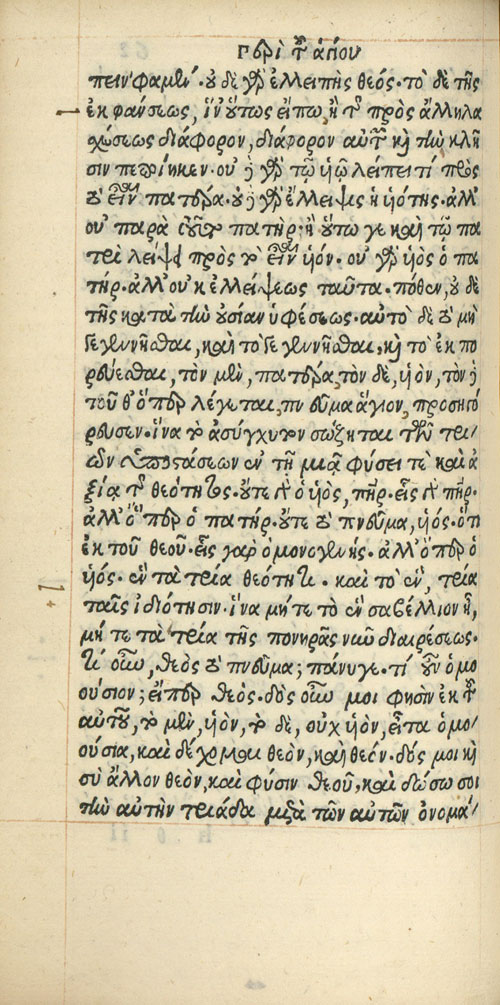 περὶ τοῦ ἁγίου
πειν φαμέν· οὐδὲ γὰρ ἐλλειπὴς θεός· τὸ δὲ τῆς
ἐκφάνσεως, ἵν' οὕτως εἴπω, ἢ τῆς πρὸς ἄλληλα
σχέσεως διάφορον, διάφορον αὐτῶν καὶ τὴν κλῆ
σιν πεποίηκεν· οὐδὲ γὰρ τῷ υἱῷ λείπει τί πρὸς
τὸ εἶναι πατέρα· οὐδὲ γὰρ ἔλλειψις ἡ υἱότης· ἀλλ'
οὐ παρὰ τοῦτο πατήρ· ἢ οὕτω γε καὶ τῷ πα
τρὶ λείψει πρὸς τὸ εἶναι υἱόν· οὐ γὰρ υἱὸς ὁ πα
τήρ· ἀλλ' οὐκ ἐλλείψεως ταῦτα· πόθεν, οὐδὲ
τῆς κατὰ τὴν οὐσίαν ὑφέσεως· αὐτὸ δὲ τὸ μὴ
γεγεννῆσθαι, καὶ τὸ γεγεννῆσθαι, καὶ τὸ ἐκπο
ρεύεσθαι, τὸν μὲν, πατέρα, τὸν δὲ, υἱὸν, τὸν δὲ
τοῦθ' ὅπερ λέγεται, πνεῦμα ἅγιον, προσηγό
ρευσεν· ἵνα τὸ ἀσύγχυτον σώζηται τῶν τρι
ῶν ὑποστάσεων ἐν τῇ μιᾷ φύσει τὲ καὶ ἀ
ξίᾳ τῆς θεότητος· οὔτε γὰρ ὁ υἱὸς, πατήρ· εἷς γὰρ πατήρ·
ἀλλ' ὅπερ ὁ πατήρ· οὔτε τὸ πνεῦμα, υἱός· ὅτι
ἐκ τοῦ θεοῦ· εἷς γὰρ ὁ μονογενής· ἀλλ' ὅπερ ὁ
υἱός· ἓν τὰ τρία θεότητι· καὶ τὸ ἓν, τρία
ταῖς ἰδιότησιν· ἵνα μήτε τὸ ἓν σαβέλλιον ᾖ,
μήτε τὰ τρία τῆς πονηρᾶς νῦν διαιρέσεως·
τί οὖν, θεὸς τὸ πνεῦμα; πάνυγε· τί οὖν ὁμο
ούσιον; εἴπερ θεός· δὸς οὖν μοι φησὶν ἐκ τοῦ
αὐτοῦ, τὸ μὲν, υἱὸν, τὸ δὲ, οὐχ υἱὸν, εἶτα ὁμο
ούσια, καὶ δέχομαι θεὸν, καὶ θεόν· δός μοι καὶ
σὺ ἄλλον θεὸν, καὶ φύσιν θεοῦ, καὶ δώσω σοι
τὴν αὐτὴν τριάδα μετὰ τῶν αὐτῶν ὀνομά